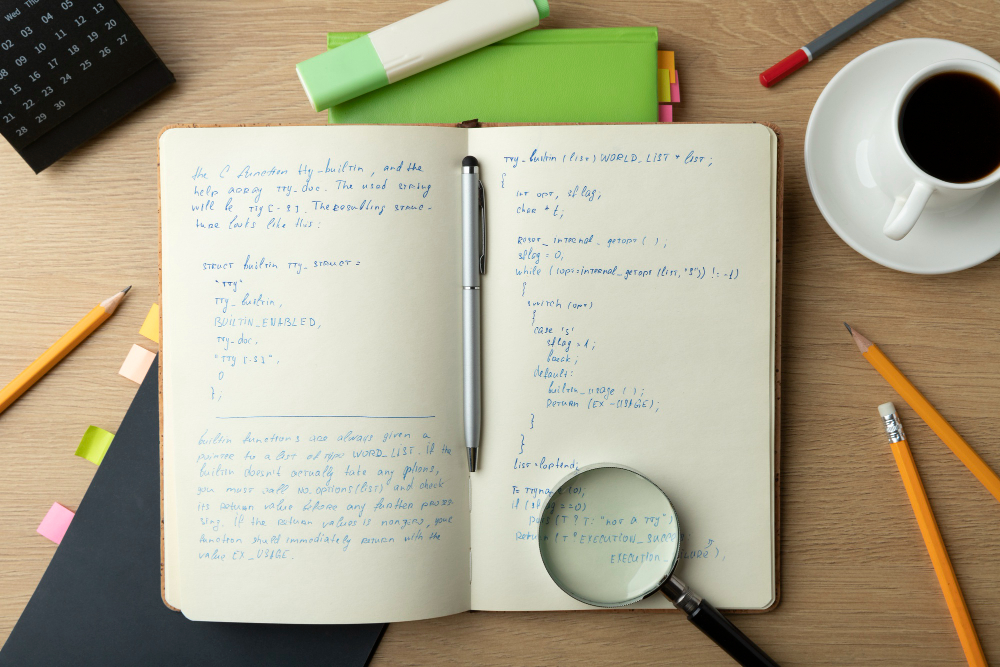 Wed Thu
04 05
02 03 11 12 13
09 10 18 19 20
08 16 17 25 26 27
15 23 24
14 22 30
21 29
28
the C function tty_builtin, and the
help array tty_doc. The used string
will be tty [-s]. The resulling struc-
ture looks like this:
struct builtin tty_struct =
"tty"
tty_builtin,
BUILTIN_ENABLED,
tty_doc,
"tty [-s]",
0
};
builtin functions are always given a
pointer to a list of type WORD_LIST. If the
builtin doesn't actually take any ptions,
you must call no_options(list) and check
its return value before any further proces-
sing. If the return values is nonzero, your
function shuld immediately return with the
value EX_USAGE.
tty_builtin (list) WORLD_LIST * list;
{
int opt, sflag,
char * t;
reset_internal_getopt ( );
sflag = 0,
while ((opt=internal_getopt (list, "s")) != -1)
{
switch (opt)
{
case 's'
sflag = 1;
break;
default:
builtin_usage ( );
return (EX_USAGE);
}
}
list = loptend;
t = ttyname (0);
if (sflag == 0)
puts (t ? t : "not a tty")
return (t ? EXECUTION_SUCC
EXECUTION_